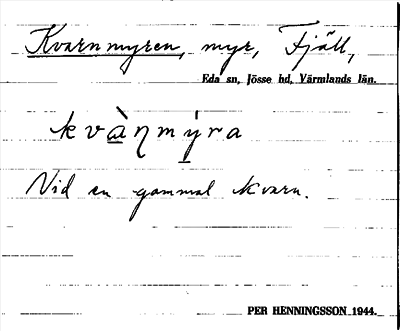 Kvarnmyren, myr, Fjäll,
Eda sn, Jösse hd, Värmlands län.
kvàɳmýra
Vid en gammal kvarn.
PER HENNINGSSON 1944.